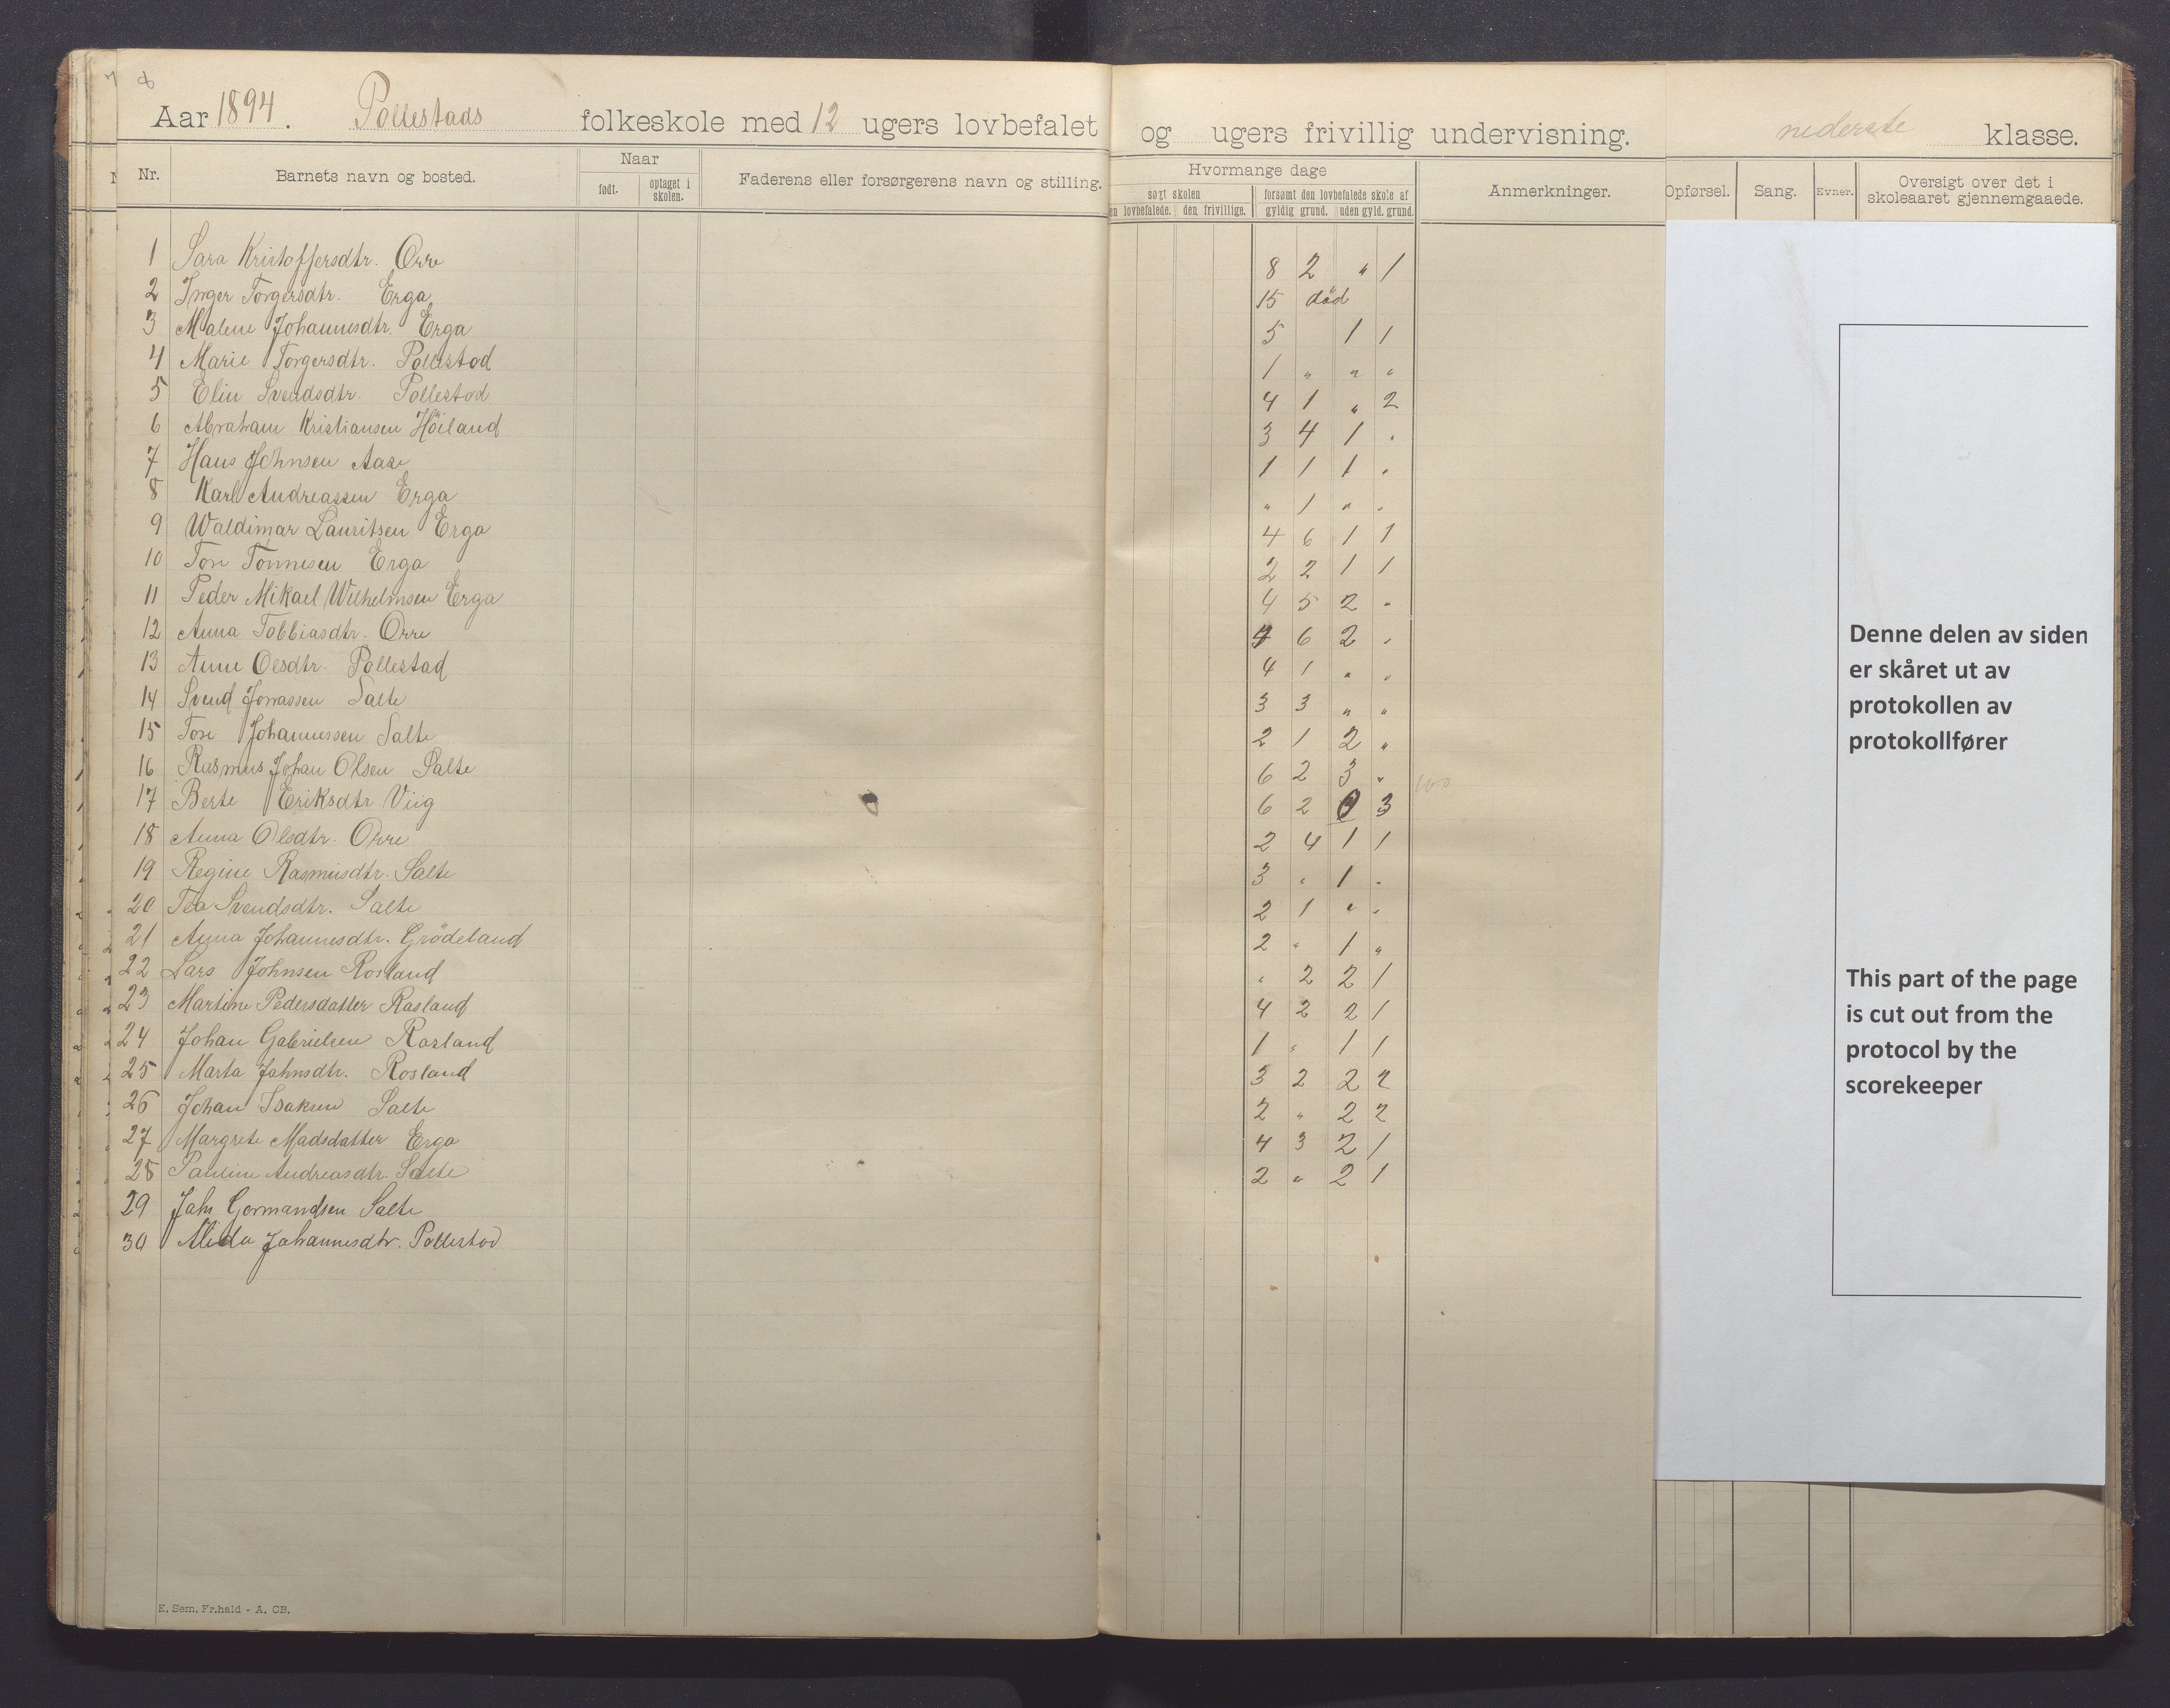 Aar 1894. Pollestads folkeskole med 12 ugers lovbefalet og ugers frivillig undervisning. nederste klasse.
Nr. Barnets navn og bosted. Naar født. optaget i skolen. Faderens eller forsørgerens navn og stilling. Hvormange dage søgt skolen den lovbefalede. den frivillige. forsømt den lovbefalede skole af gyldig grund. uden gyld. grund. Anmerkninger. Opførsel. Sang. Evner. Oversigt over det i skoleaaret gjennemgaaede.
1 Sara Kristoffersdtr. Orre 8 2 " 1
2 Inger Torgersdtr. Erga 15 död
3 Malene Johannesdtr. Erga 5 1 1
4 Marie Torgersdtr. Pollestad 1 " " "
5 Elin Svendsdtr. Pollestad 4 1 " 2
6 Abraham Kristiansen Höiland 3 4 1 "
7 Hans Johnsen Aase 1 1 1 "
8 Karl Andreassen Erga " 1 " "
9 Waldimar Lauritsen Erga 4 6 1 1
10 Tore Tönnesen Erga 2 2 1 1
11 Peder Mikael Wilhelmsen Erga 4 5 2 "
12 Anna Tobbiasdtr. Orre 4 6 2 "
13 Anne Olsdtr. Pollestad 4 1 " "
14 Svend Jonassen Salte 3 3 " "
15 Tore Johannessen Salte 2 1 2 "
16 Rasmus Johan Olsen Salte 6 2 3 "
17 Berte Eriksdtr. Viig 6 2 0 3
18 Anna Olsdtr. Orre 2 4 1 1
19 Regine Rasmusdtr. Salte 3 " 1 "
20 Tea Svendsdtr. Salte 2 1 " "
21 Anna Johannesdtr. Grödeland 2 " 1 "
22 Lars Johnsen Rosland " 2 2 1
23 Martine Pedersdatter Rasland 4 2 2 1
24 Johan Gabrielsen Rosland 1 " 1 1
25 Marta Johnsdtr. Rosland 3 2 2 2
26 Johan Isaksen Salte 2 " 2 2
27 Margrete Madsdatter Erga 4 3 2 1
28 Pauline Andreasdtr. Salte 2 " 2 1
29 Jahn Gormandsen Salte
30 Alida Johannesdtr. Pollestad
E. Sem, Fr.hald - A. CB.
Denne delen av siden
er skåret ut av
protokollen av
protokollfører
This part of the page
is cut out from the
protocol by the
scorekeeper